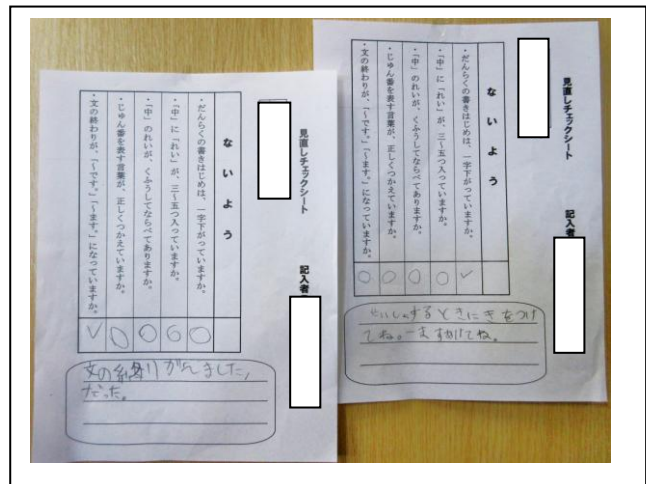 見直しチェックシート
記入者
ないよう
・だんらくの書きはじめは、一字下がっていますか。
・「中」に「れい」が、三~五つ入っていますか。
・「中」のれいが、くふうしてならべてありますか。
・じゅん番を表す言葉が、正しくつかえていますか。
・文の終わりが、「~です。」「~ます。」になっていますか。
✓
○
○
○
○
せいしょするときにきをつけ
てね。一ますあけてね。
見直しチェックシート
記入者
ないよう
・だんらくの書きはじめは、一字下がっていますか。
・「中」に「れい」が、三~五つ入っていますか。
・「中」のれいが、くふうしてならべてありますか。
・じゅん番を表す言葉が、正しくつかえていますか。
・文の終わりが、「~です。」「~ます。」になっていますか。
○
○
○
○
✓
文の終りが
ました,
だった。